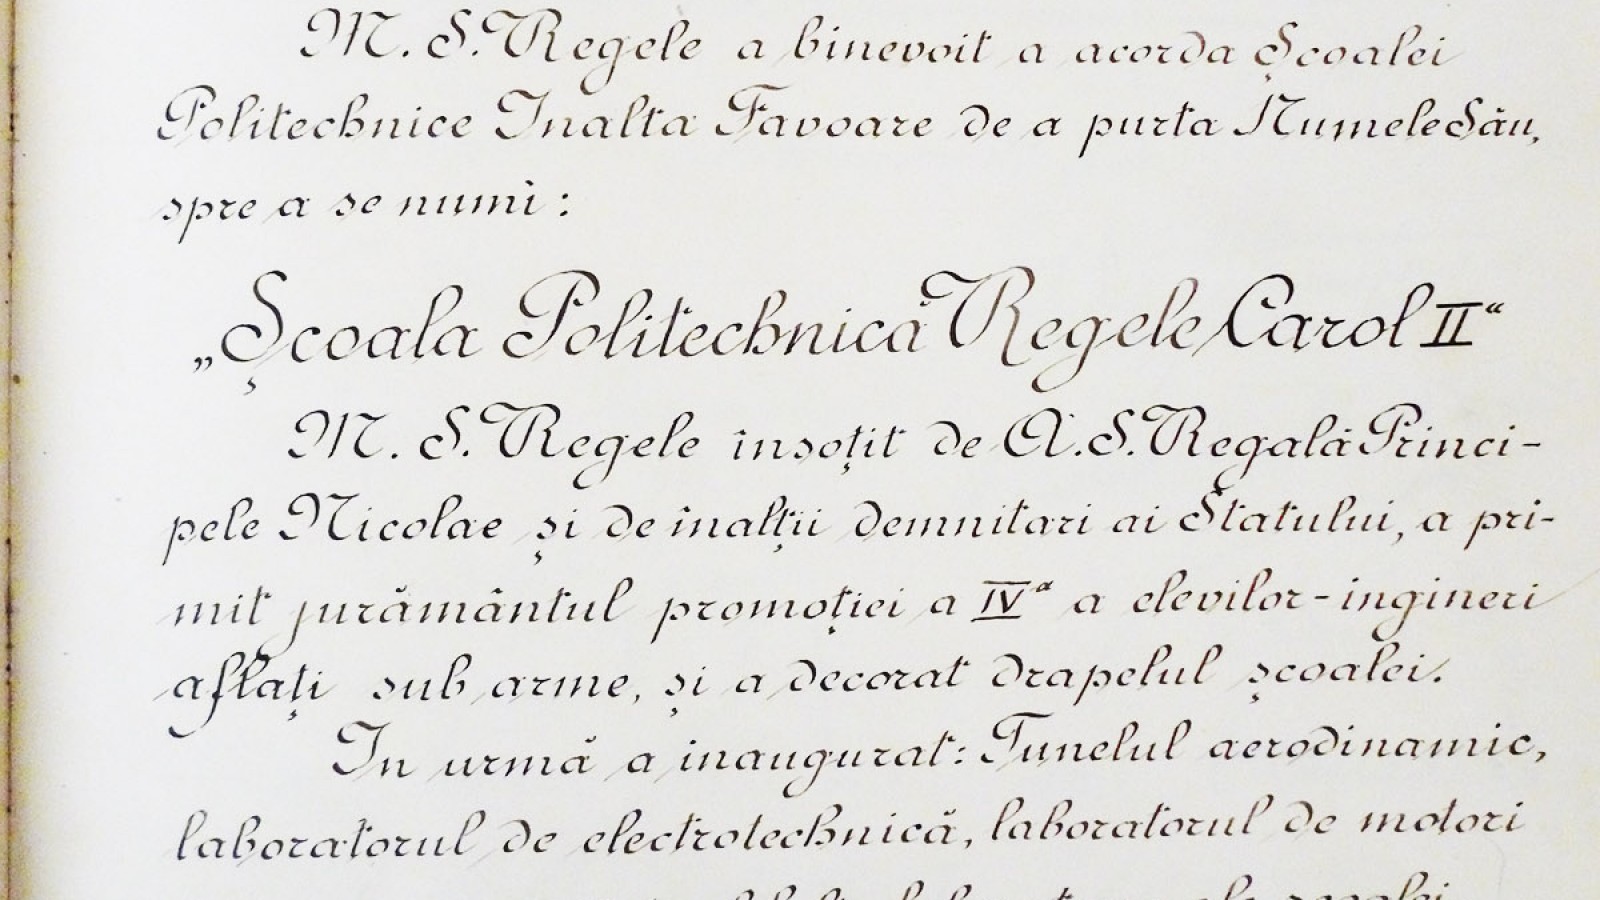 M. S. Regele a binevoit a acorda Școalei
Politechnice Inalta Favoare de a purta Numele Său,
spre a se numi:
„Școala Politechnică Regele Carol II“
M. S. Regele însoțit de A. S. Regală Princi-
pele Nicolae și de înalții demnitari ai Statului, a pri-
mit jurământul promoției a IVa a elevilor-ingineri
aflați sub arme, și a decorat drapelul școalei.
In urmă a inaugurat: Tunelul aerodinamic,
laboratorul de electrotechnică, laboratorul de motori
școalei